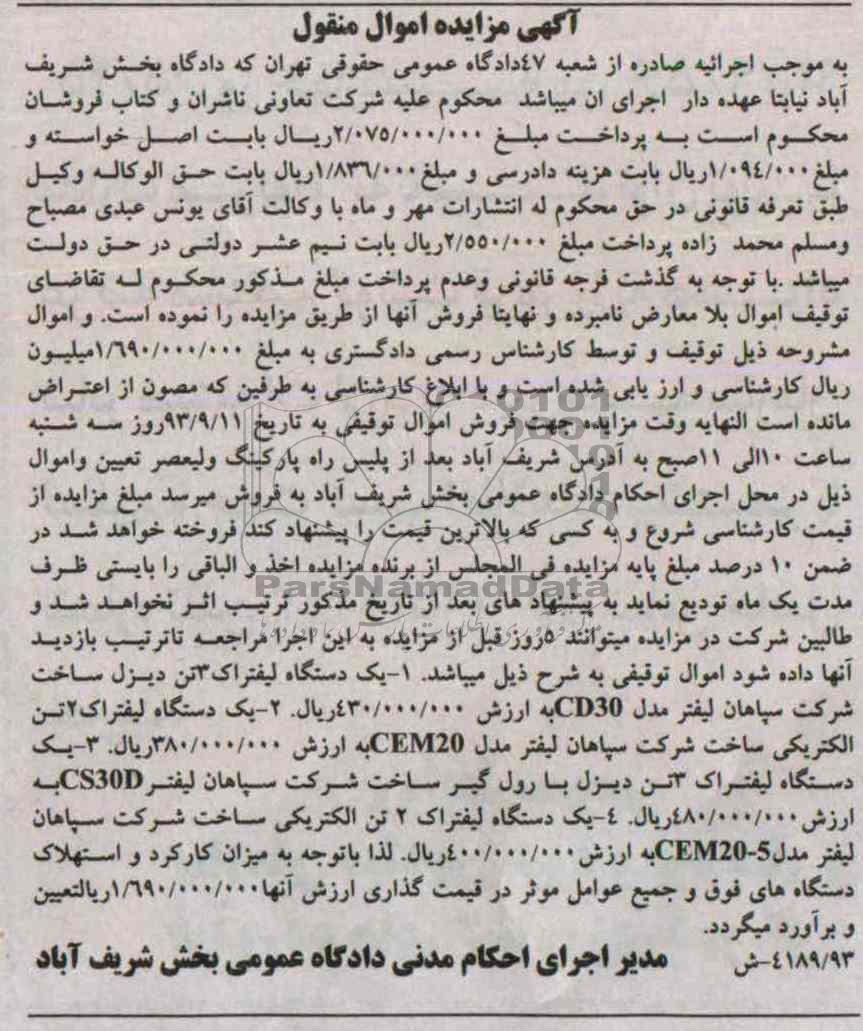 آگهی مزایده اموال منقول
به موجب اجرائیه صادره از شعبه ٤٧دادگاه عمومی حقوقی تهران که دادگاه بخش شریف
آباد نیابتا عهده دار اجرای ان میباشد محکوم علیه شرکت تعاونی ناشران و کتاب فروشان
محکوم است به پرداخت مبلغ ٢/٠٧٥/٠٠٠/٠٠٠ریال بابت اصل خواسته و
مبلغ ١/٠٩٤/٠٠٠ریال بابت هزینه دادرسی و مبلغ ١/٨٣٦/٠٠٠ریال بابت حق الوکاله وکیل
طبق تعرفه قانونی در حق محکوم له انتشارات مهر و ماه با وکالت آقای یونس عبدی مصباح
ومسلم محمد زاده پرداخت مبلغ ٢/٥٥٠/٠٠٠ریال بابت نیم عشر دولتی در حق دولت
میباشد .با توجه به گذشت فرجه قانونی وعدم پرداخت مبلغ مذکور محکوم له تقاضای
توقیف اموال بلا معارض نامبرده و نهایتا فروش آنها از طریق مزایده را نموده است. و اموال
مشروحه ذیل توقیف و توسط کارشناس رسمی دادگستری به مبلغ ١/٦٩٠/٠٠٠/٠٠٠میلیون
ریال کارشناسی و ارز یابی شده است و با ابلاغ کارشناسی به طرفین که مصون از اعتراض
مانده است النهایه وقت مزایده جهت فروش اموال توقیفی به تاریخ ٩٣/٩/١١روز سه شنبه
ساعت ١٠الی ١١صبح به آدرس شریف آباد بعد از پلیس راه پارکینگ ولیعصر تعیین واموال
ذیل در محل اجرای احکام دادگاه عمومی بخش شریف آباد به فروش میرسد مبلغ مزایده از
قیمت کارشناسی شروع و به کسی که بالاترین قیمت را پیشنهاد کند فروخته خواهد شد در
ضمن ١٠ درصد مبلغ پایه مزایده فی المجلس از برنده مزایده اخذ و الباقی را بایستی ظرف
مدت یک ماه تودیع نماید به پیشنهاد های بعد از تاریخ مذکور ترتیب اثر نخواهد شد و
طالبین شرکت در مزایده میتوانند ٥روز قبل از مزایده به این اجرا مراجعه تاترتیب بازدید
آنها داده شود اموال توقیفی به شرح ذیل میباشد. ١-یک دستگاه لیفتراک٣تن دیزل ساخت
شرکت سپاهان لیفتر مدل CD30به ارزش ٤٣٠/٠٠٠/٠٠٠ریال. ٢-یک دستگاه لیفتراک٢تن
الکتریکی ساخت شرکت سپاهان لیفتر مدل CEM20به ارزش ٣٨٠/٠٠٠/٠٠٠ریال. ٣-یک
دستگاه لیفتراک ٣تن دیزل با رول گیر ساخت شرکت سپاهان لیفتر CS30Dبه
ارزش٤٨٠/٠٠٠/٠٠٠ریال. ٤-یک دستگاه لیفتراک ٢ تن الکتریکی ساخت شرکت سپاهان
لیفتر مدلCEM20-5به ارزش٤٠٠/٠٠٠/٠٠٠ریال. لذا باتوجه به میزان کارکرد و استهلاک
دستگاه های فوق و جمیع عوامل موثر در قیمت گذاری ارزش آنها١/٦٩٠/٠٠٠/٠٠٠ریالتعیین
و برآورد میگردد.
٤١٨٩/٩٣-ش مدیر اجرای احکام مدنی دادگاه عمومی بخش شریف آباد
ParsNamadData